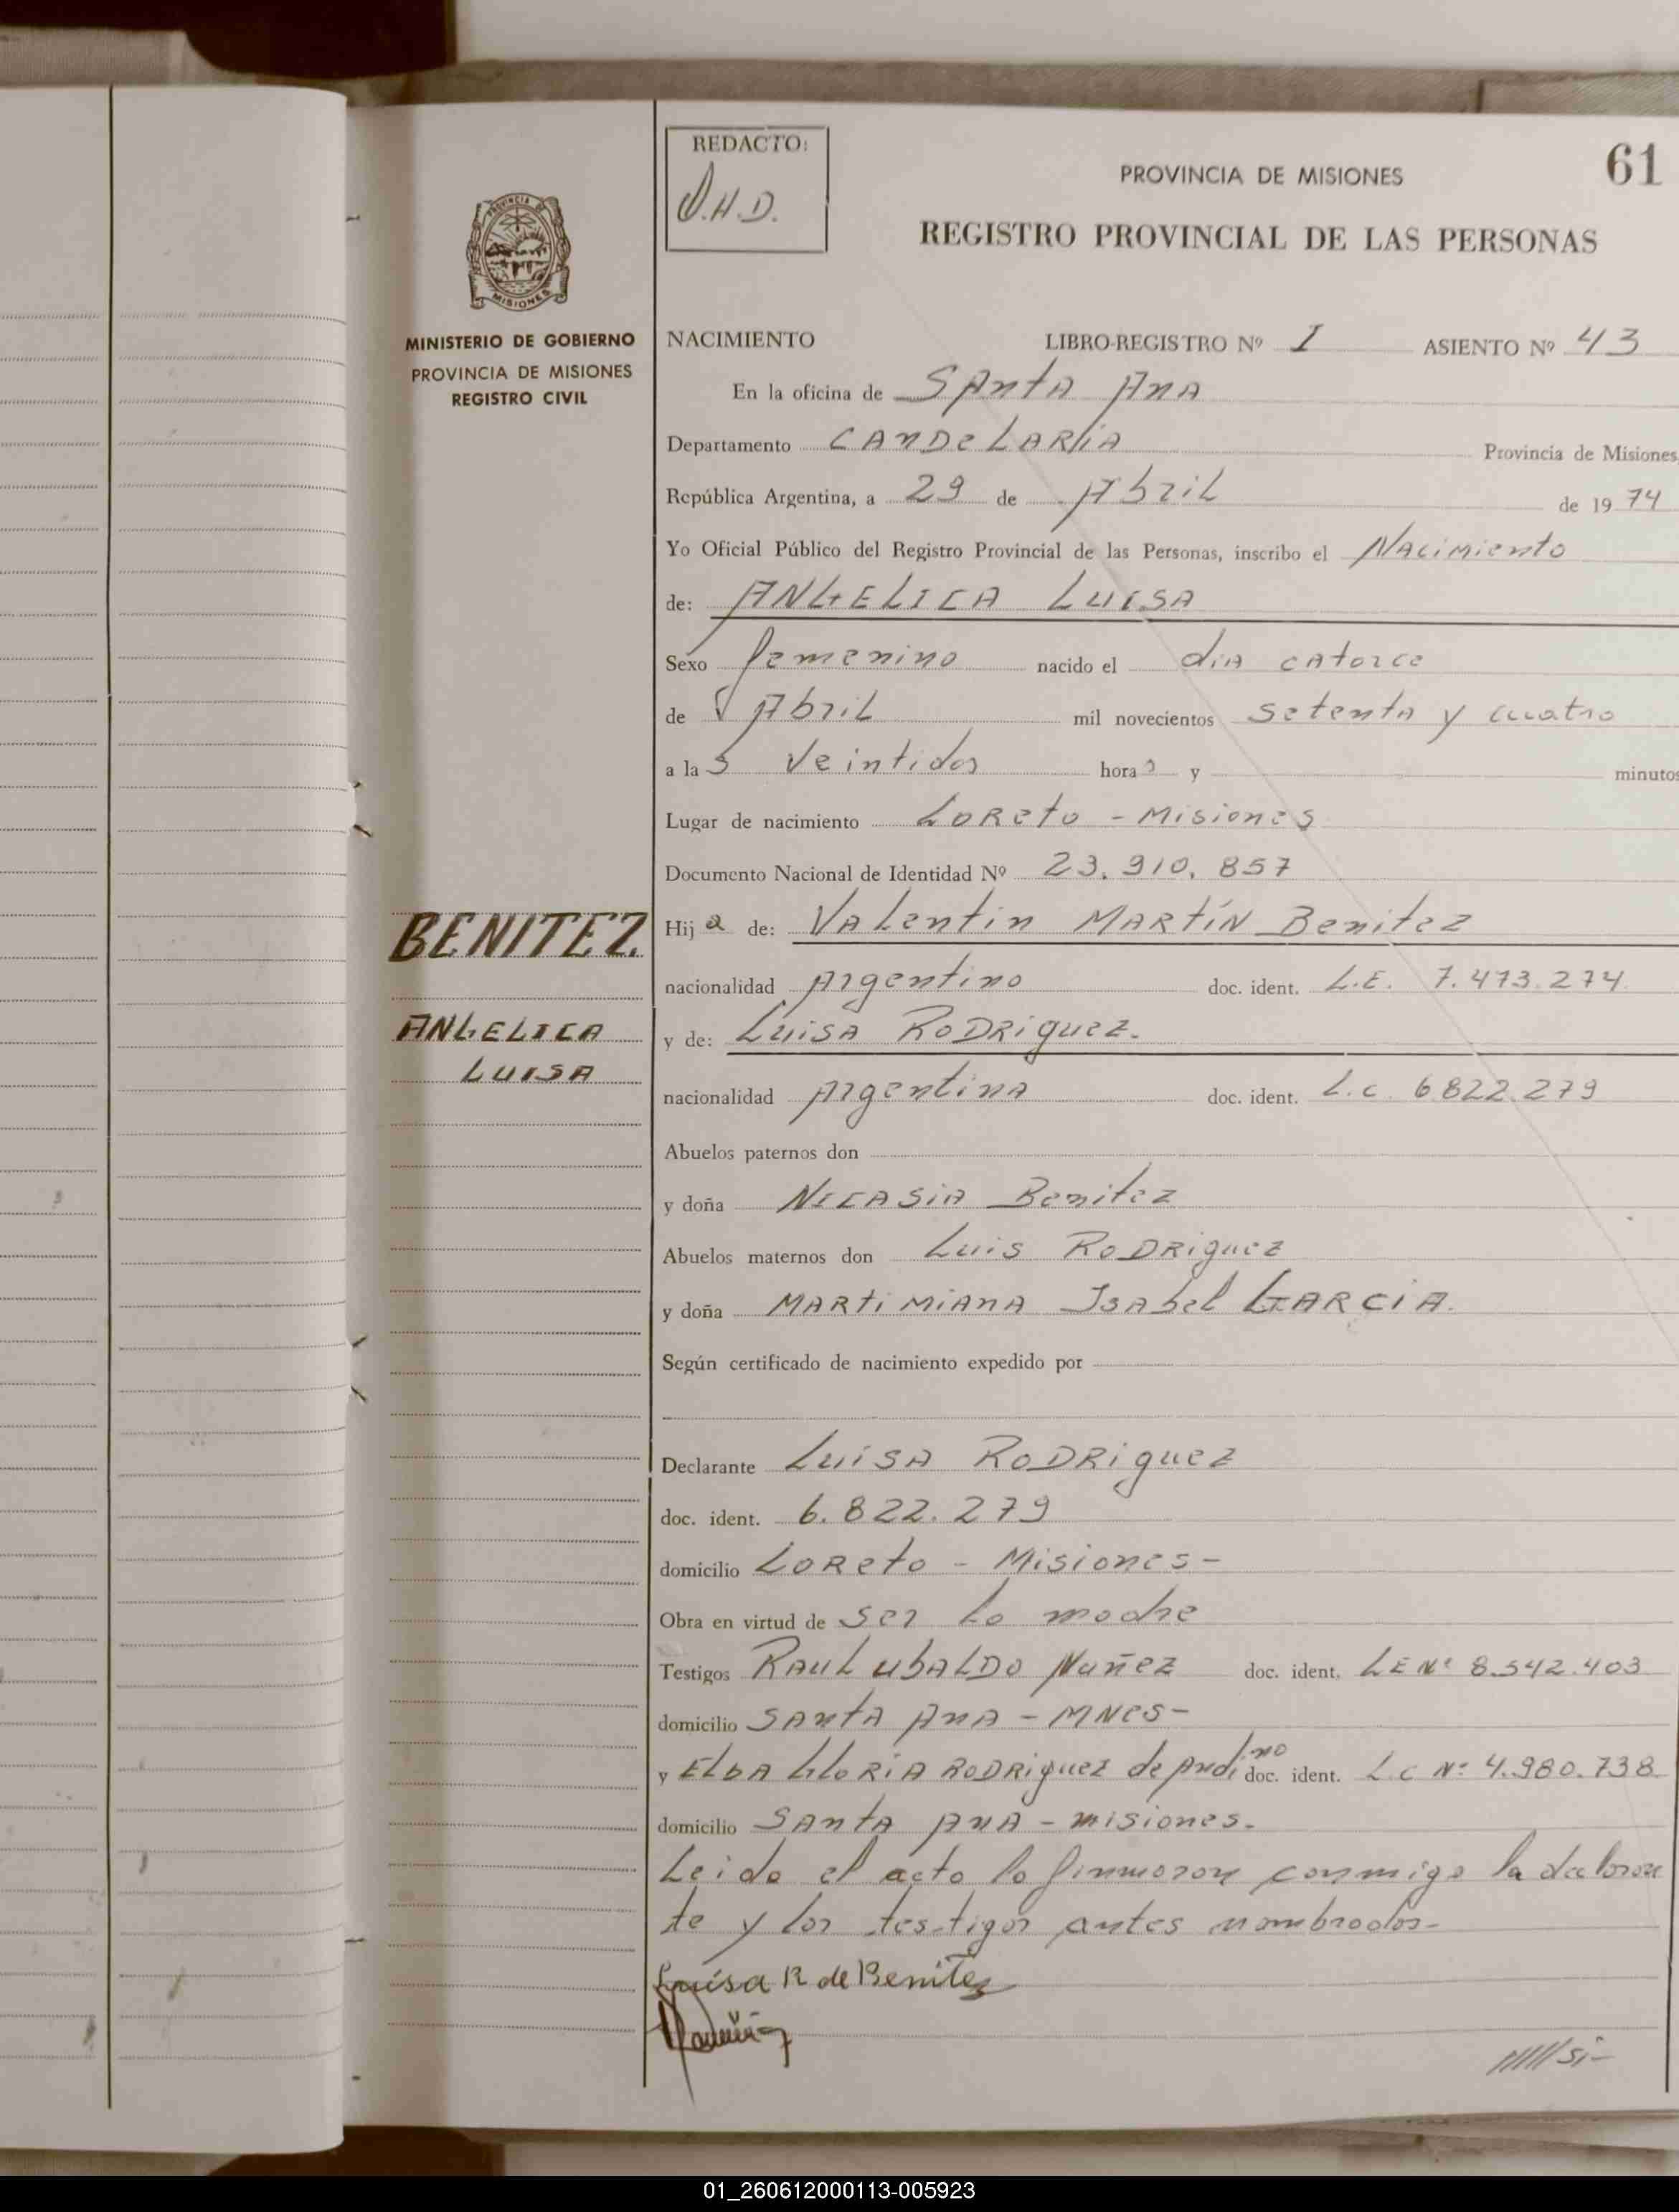 REDACTO:
O.H.D.
PROVINCIA DE MISIONES
61
REGISTRO PROVINCIAL DE LAS PERSONAS
PROVINCIA DE
MISIONES
MINISTERIO DE GOBIERNO
PROVINCIA DE MISIONES
REGISTRO CIVIL
NACIMIENTO LIBRO-REGISTRO Nº I ASIENTO Nº 43
En la oficina de SAntA AnA
Departamento CANDeLARiA Provincia de Misiones
República Argentina, a 29 de Abril de 1974
Yo Oficial Público del Registro Provincial de las Personas, inscribo el Nacimiento
de: ANGELICA LUISA
Sexo femenino nacido el día catorce
de Abril mil novecientos setenta y cuatro
a las veintidos horas y minutos
Lugar de nacimiento LoReto - Misiones
Documento Nacional de Identidad Nº 23.910.857
BENITEZ.
Hija de: VALentin MARtíN Benitez
nacionalidad Argentino doc. ident. L.E. 7.473.274
ANGELICA
LUISA
y de: LuiSA RoDRiguez.
nacionalidad Argentina doc. ident. L.C. 6822.279
Abuelos paternos don
y doña NICASiA Benitez
Abuelos maternos don Luis RoDRiguez
y doña MARtiMiAnA ISAbel GARCiA.
Según certificado de nacimiento expedido por
Declarante LuiSA RoDRiguez
doc. ident. 6.822.279
domicilio LoReto - Misiones -
Obra en virtud de ser la madre
Testigos RAuL ubALDo Nuñez doc. ident. LE Nº 8.542.403
domicilio SAntA AnA - MNes -
y ELbA GLoRiA RoDRiguez de Andino doc. ident. L.C Nº 4.980.738
domicilio SAntA AnA - misiones.
Leido el acta la firmaron conmigo la declaran
te y los testigos antes nombrados -
Luisa R de Benitez
////si-
01_260612000113-005923